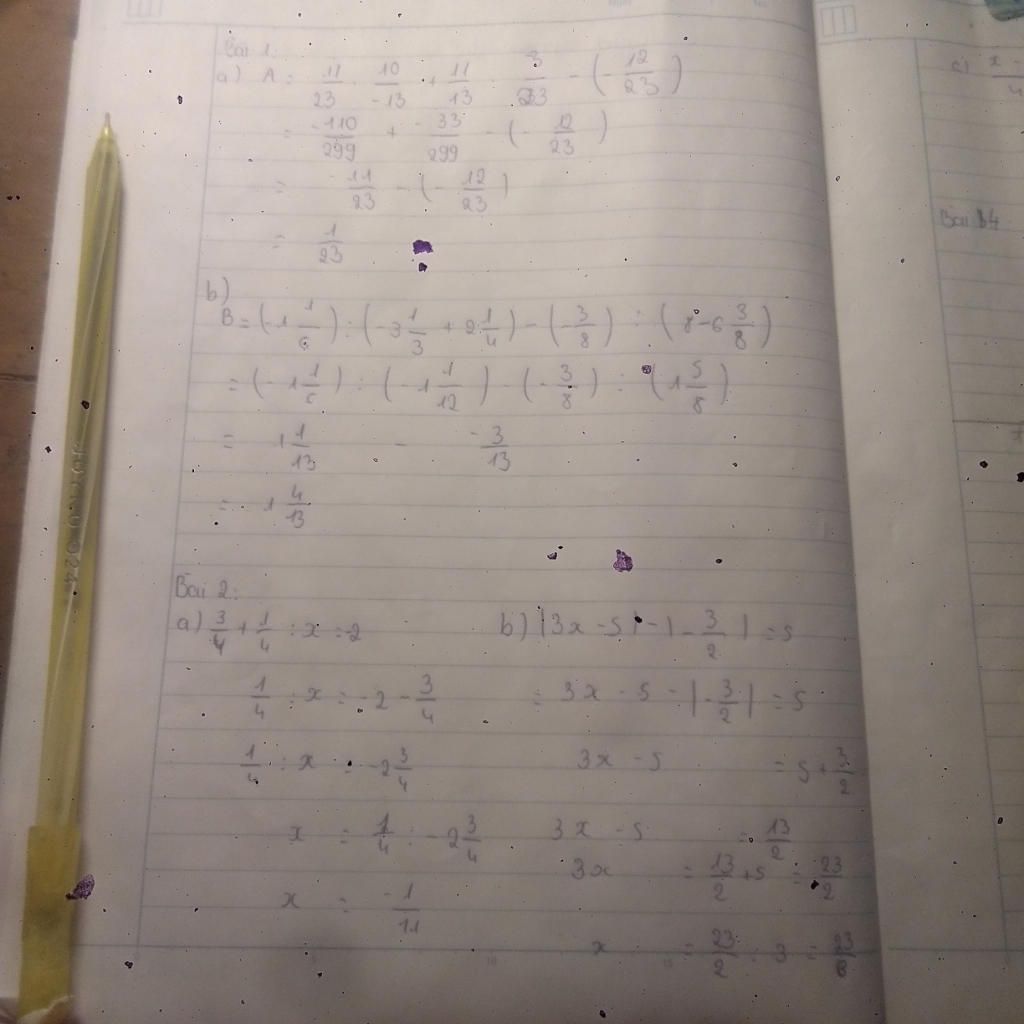 Bài 1:
a) A = 11/23 . 10/-13 + 11/13 . 3/23 - (-12/23)
= -110/299 + -33/299 - (-12/23)
= -11/23 - (-12/23)
= 1/23
b)
B = (-1 1/6) : (-3 1/3 + 2 1/4) - (-3/8) : (8 - 6 3/8)
= (-1 1/6) : (-1 1/12) - (-3/8) : (1 5/8)
= 1 1/13 - -3/13
= 1 4/13
Bài 2:
a) 3/4 + 1/4 : x = -2
1/4 : x = -2 - 3/4
1/4 : x = -2 3/4
x = 1/4 : -2 3/4
x = -1/11
b) |3x - 5| - |-3/2| = 5
= 3x - 5 - |-3/2| = 5
3x - 5 = 5 + 3/2
3x - 5 = 13/2
3x = 13/2 + 5 = 23/2
x = 23/2 : 3 = 23/6
c) x -
4
Bài 4